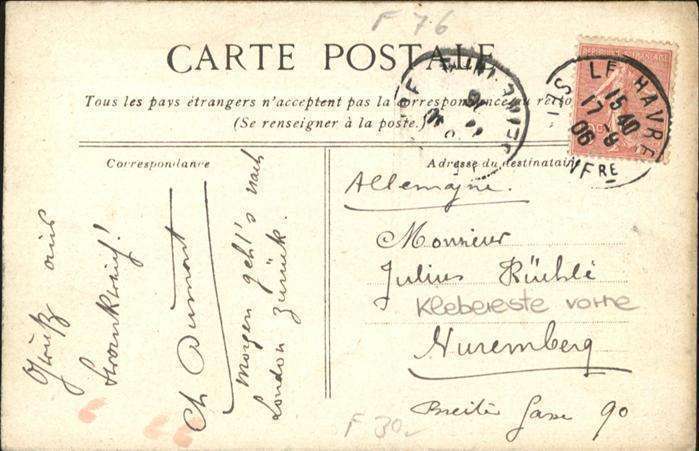 F 76
CARTE POSTALE
Tous les pays étrangers n'acceptent pas la correspondance au recto
(Se renseigner à la poste.)
LE HAVRE
15 40
17 - 9
06
Correspondance
Gruß aus
Frankreich!
Ch Dumont
Morgen geht's nach
London zurück.
Adresse du destinataire
Allemagne.
Monsieur
Julius Rühle
Klebereste vorne
Nuremberg
Breite Gasse 90
F 30.-